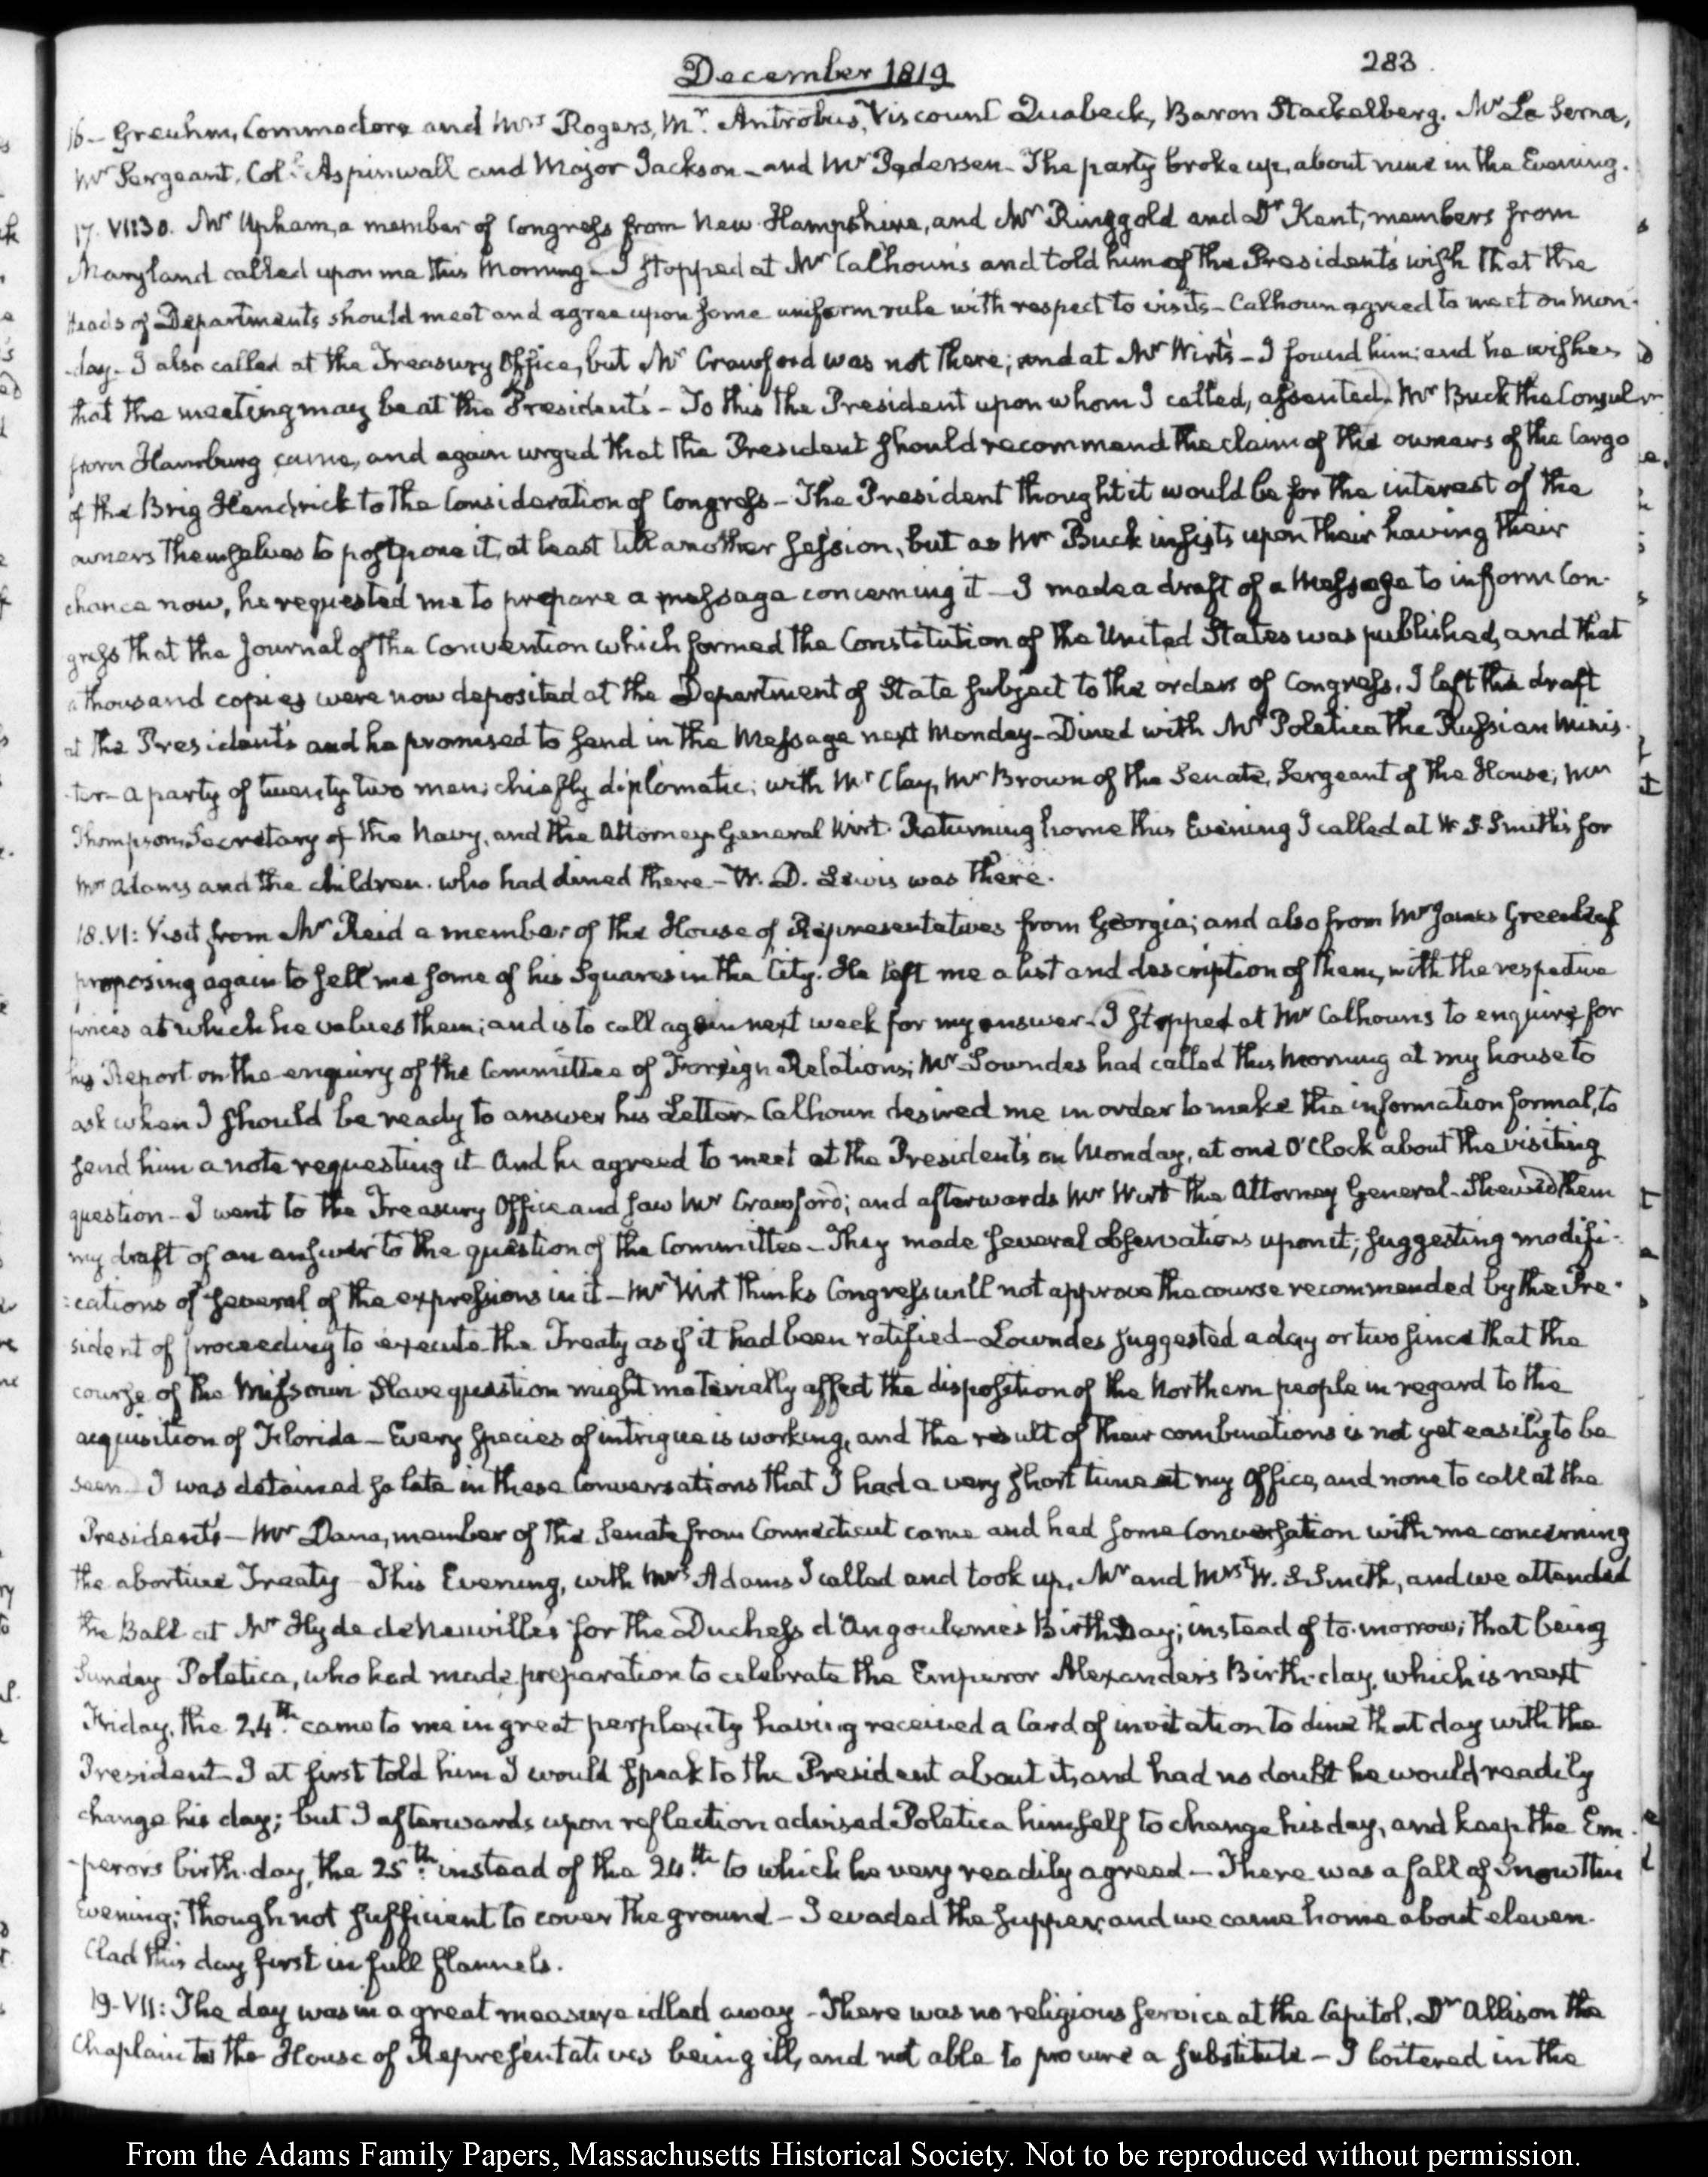 December 1819
283.
16– Greuhm, Commodore and Mrs Rogers, Mr. Antrobus, Viscount Quabeck, Baron Stackelberg. Mr La Serna,
Mr Sergeant. Coll. Aspinwall and Major Jackson – and Mr Pedersen – The party broke up, about nine in the Evening.
17. VII:30. Mr Upham, a member of Congress from New-Hampshire, and Mr Ringgold and Dr Kent, members from
Maryland called upon me this Morning – I stopped at Mr Calhoun's and told him of the President's wish that the
Heads of Departments should meet and agree upon some uniform rule with respect to visits – Calhoun agreed to meet on Mon-
-day – I also called at the Treasury Office, but Mr Crawford was not there; and at Mr Wirt's – I found him; and he wishes
that the meeting may be at the President's – To this the President upon whom I called, assented. Mr Buck the Consul
from Hamburg came, and again urged that the President should recommend the claim of the owners of the Cargo
of the Brig Hendrick to the Consideration of Congress – The President thought it would be for the interest of the
owners themselves to postpone it, at least till another Session, but as Mr Buck insists upon their having their
chance now, he requested me to prepare a message concerning it – I made a draft of a Message to inform Con-
gress that the Journal of the Convention which formed the Constitution of the United States was published, and that
a thousand copies were now deposited at the Department of State subject to the orders of Congress. I left the draft
at the President's and he promised to send in the Message next Monday – Dined with Mr Poletica the Russian Minis-
-ter – a party of twenty two men; chiefly diplomatic; with Mr Clay, Mr Brown of the Senate, Sergeant of the House; Mr
Thompson Secretary of the Navy, and the Attorney General Wirt. Returning home this Evening I called at W. S. Smith's for
Mrs Adams and the children. who had dined there – W. D. Lewis was there.
18. VI: Visit from Mr Reid a member of the House of Representatives from Georgia; and also from Mr James Greenleaf
proposing again to sell me some of his Squares in the City. He left me a list and description of them, with the respective
prices at which he values them; and is to call again next week for my answer – I stopped at Mr Calhoun's to enquire for
his Report on the enquiry of the Committee of Foreign Relations; Mr Lowndes had called this Morning at my house to
ask when I should be ready to answer his Letter – Calhoun desired me in order to make the information formal, to
send him a note requesting it – And he agreed to meet at the President's on Monday, at one O'Clock about the visiting
question – I went to the Treasury Office and saw Mr Crawford; and afterwards Mr Wirt the Attorney General – Shewed them
my draft of an answer to the question of the Committee – They made several observations upon it; suggesting modifi-
:cations of several of the expressions in it – Mr Wirt thinks Congress will not approve the course recommended by the Pre-
sident of proceeding to execute the Treaty as if it had been ratified – Lowndes suggested a day or two since that the
course of the Missouri Slave question might materially affect the disposition of the Northern people in regard to the
acquisition of Florida – Every species of intrigue is working, and the result of their combinations is not yet easily to be
seen – I was detained so late in these Conversations that I had a very short time at my Office, and none to call at the
President's – Mr Dana, member of the Senate from Connecticut came and had some Conversation with me concerning
the abortive Treaty – This Evening, with Mrs Adams I called and took up, Mr and Mrs W. S. Smith, and we attended
the Ball at Mr Hyde de Neuville's for the Duchess d'Angouleme's Birth Day; instead of to-morrow; that being
Sunday – Poletica, who had made preparation to celebrate the Emperor Alexander's Birth-day, which is next
Friday, the 24th. came to me in great perplexity having received a Card of invitation to dine that day with the
President – I at first told him I would speak to the President about it, and had no doubt he would readily
change his day; but I afterwards upon reflection advised Poletica himself to change his day, and keep the Em-
-peror's birth-day, the 25th. instead of the 24th. to which he very readily agreed – There was a fall of Snow this
Evening; though not sufficient to cover the ground – I evaded the supper, and we came home about eleven.
Clad this day first in full flannels.
19. VII: The day was in a great measure idled away – There was no religious service at the Capitol. Dr Allison the
Chaplain to the House of Representatives being ill, and not able to procure a substitute – I loitered in the
From the Adams Family Papers, Massachusetts Historical Society. Not to be reproduced without permission.